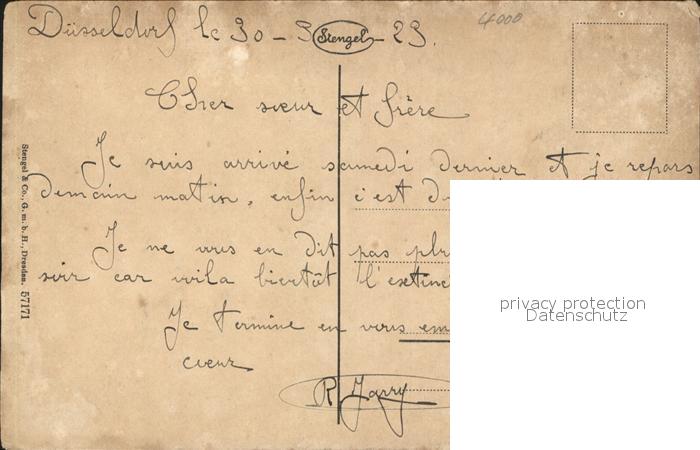 Düsseldorf le 30 - 3 - 23.
4000
Stengel
Cher sœur et frère
Je suis arrivé samedi dernier et je repars
demain matin, enfin c'est
Je ne vous en dit pas plus
soir car voila bientôt l'extinc
Je termine en vous em
cœur
R Jarry
Stengel & Co., G. m. b. H., Dresden. 57171
privacy protection
Datenschutz